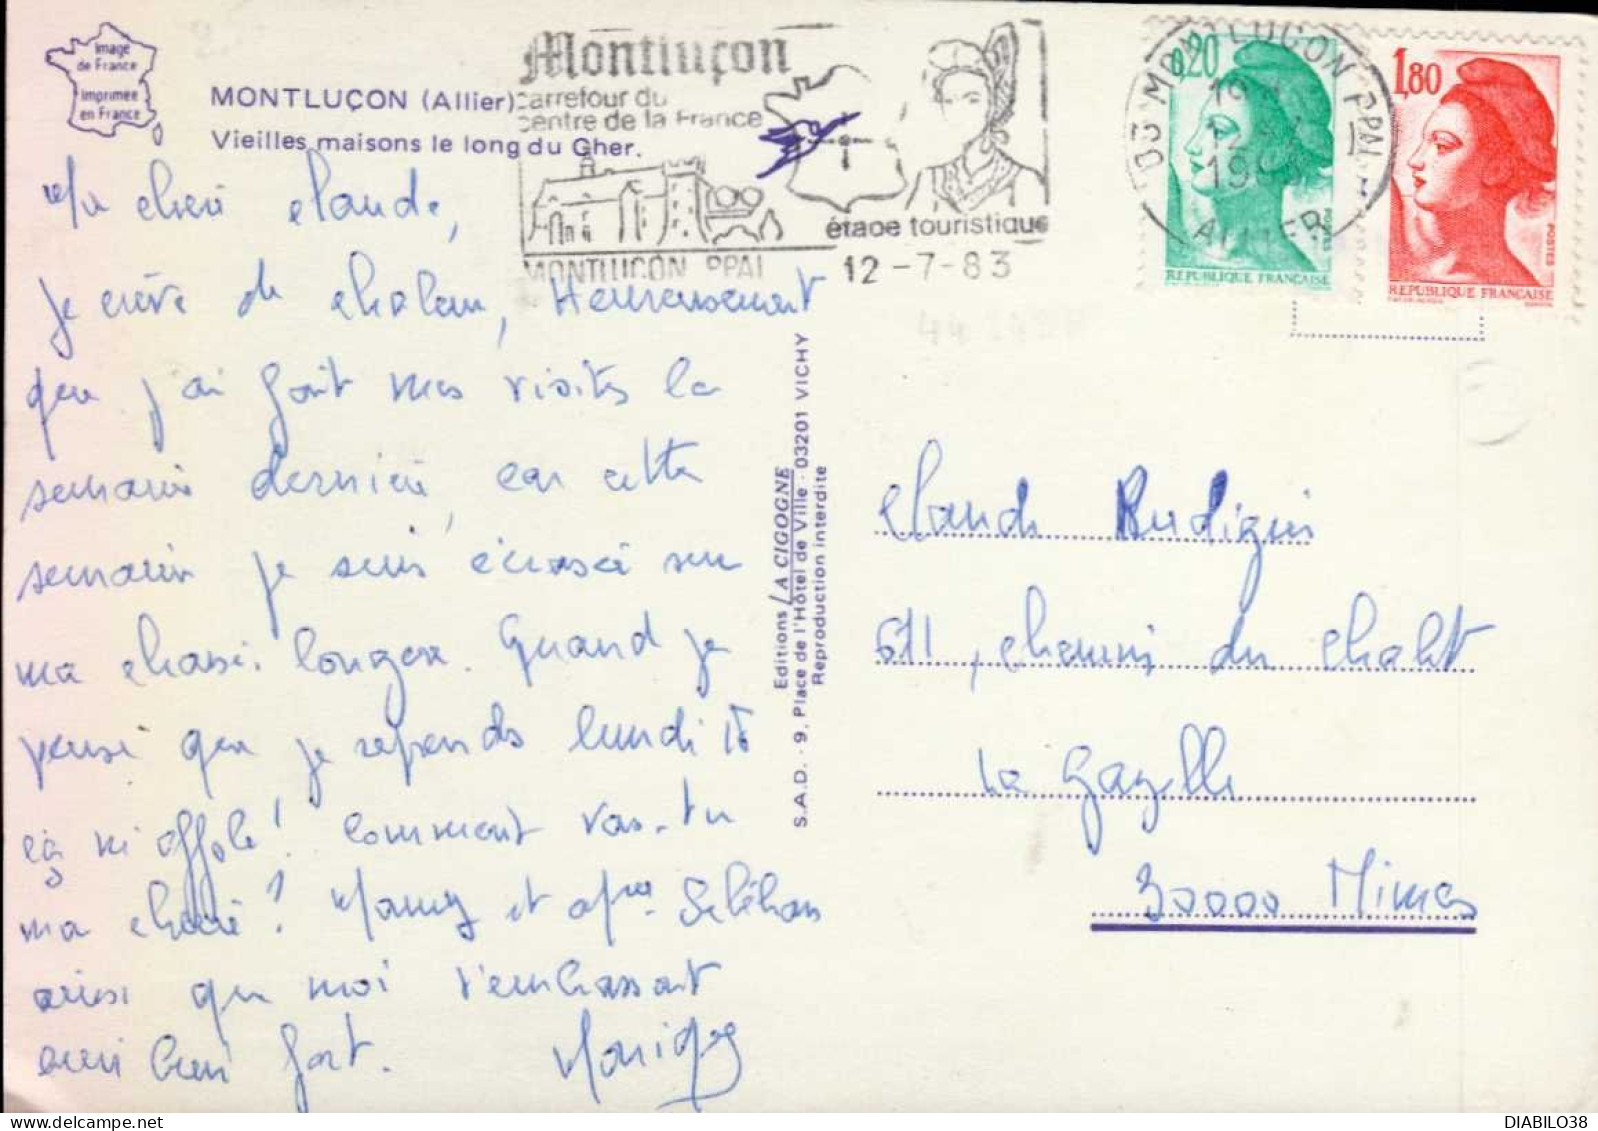 Image
de France
Imprimée
en France
MONTLUÇON (Allier)
Vieilles maisons le long du Cher.
Montluçon
carrefour du
centre de la France
étape touristique
MONTLUCON PPAL
12-7-83
03 MONTLUCON PPAL
12
ALLIER
0,20
REPUBLIQUE FRANÇAISE
1,80
POSTES
REPUBLIQUE FRANÇAISE
Ma chère Claude,
Je crève de chaleur, Heureusement
que j'ai fait mes visites la
semaine dernière, car cette
semaine je suis écrasée sur
ma chaise longue. Quand je
pense que je reprends lundi 18
ça m'affole! Comment vas-tu
ma chérie? Mamy et Stéphan
ainsi que moi t'embrassent
bien fort.
Editions LA CIGOGNE
S.A.D. - 9, Place de l'Hôtel de Ville - 03201 VICHY
Reproduction interdite
Claude
611, chemin du chalet
La Gazelle
30000 Nimes
DIABILO38